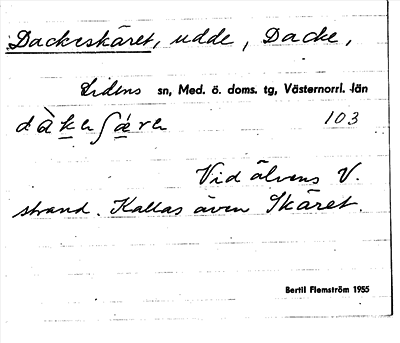 Dackeskäret, udde, Dacke,
Lidens sn, Med. ö. doms. tg, Västernorrl. län
103
Vid älvens V.
strand. Kallas även Skäret.
Bertil Flemström 1955